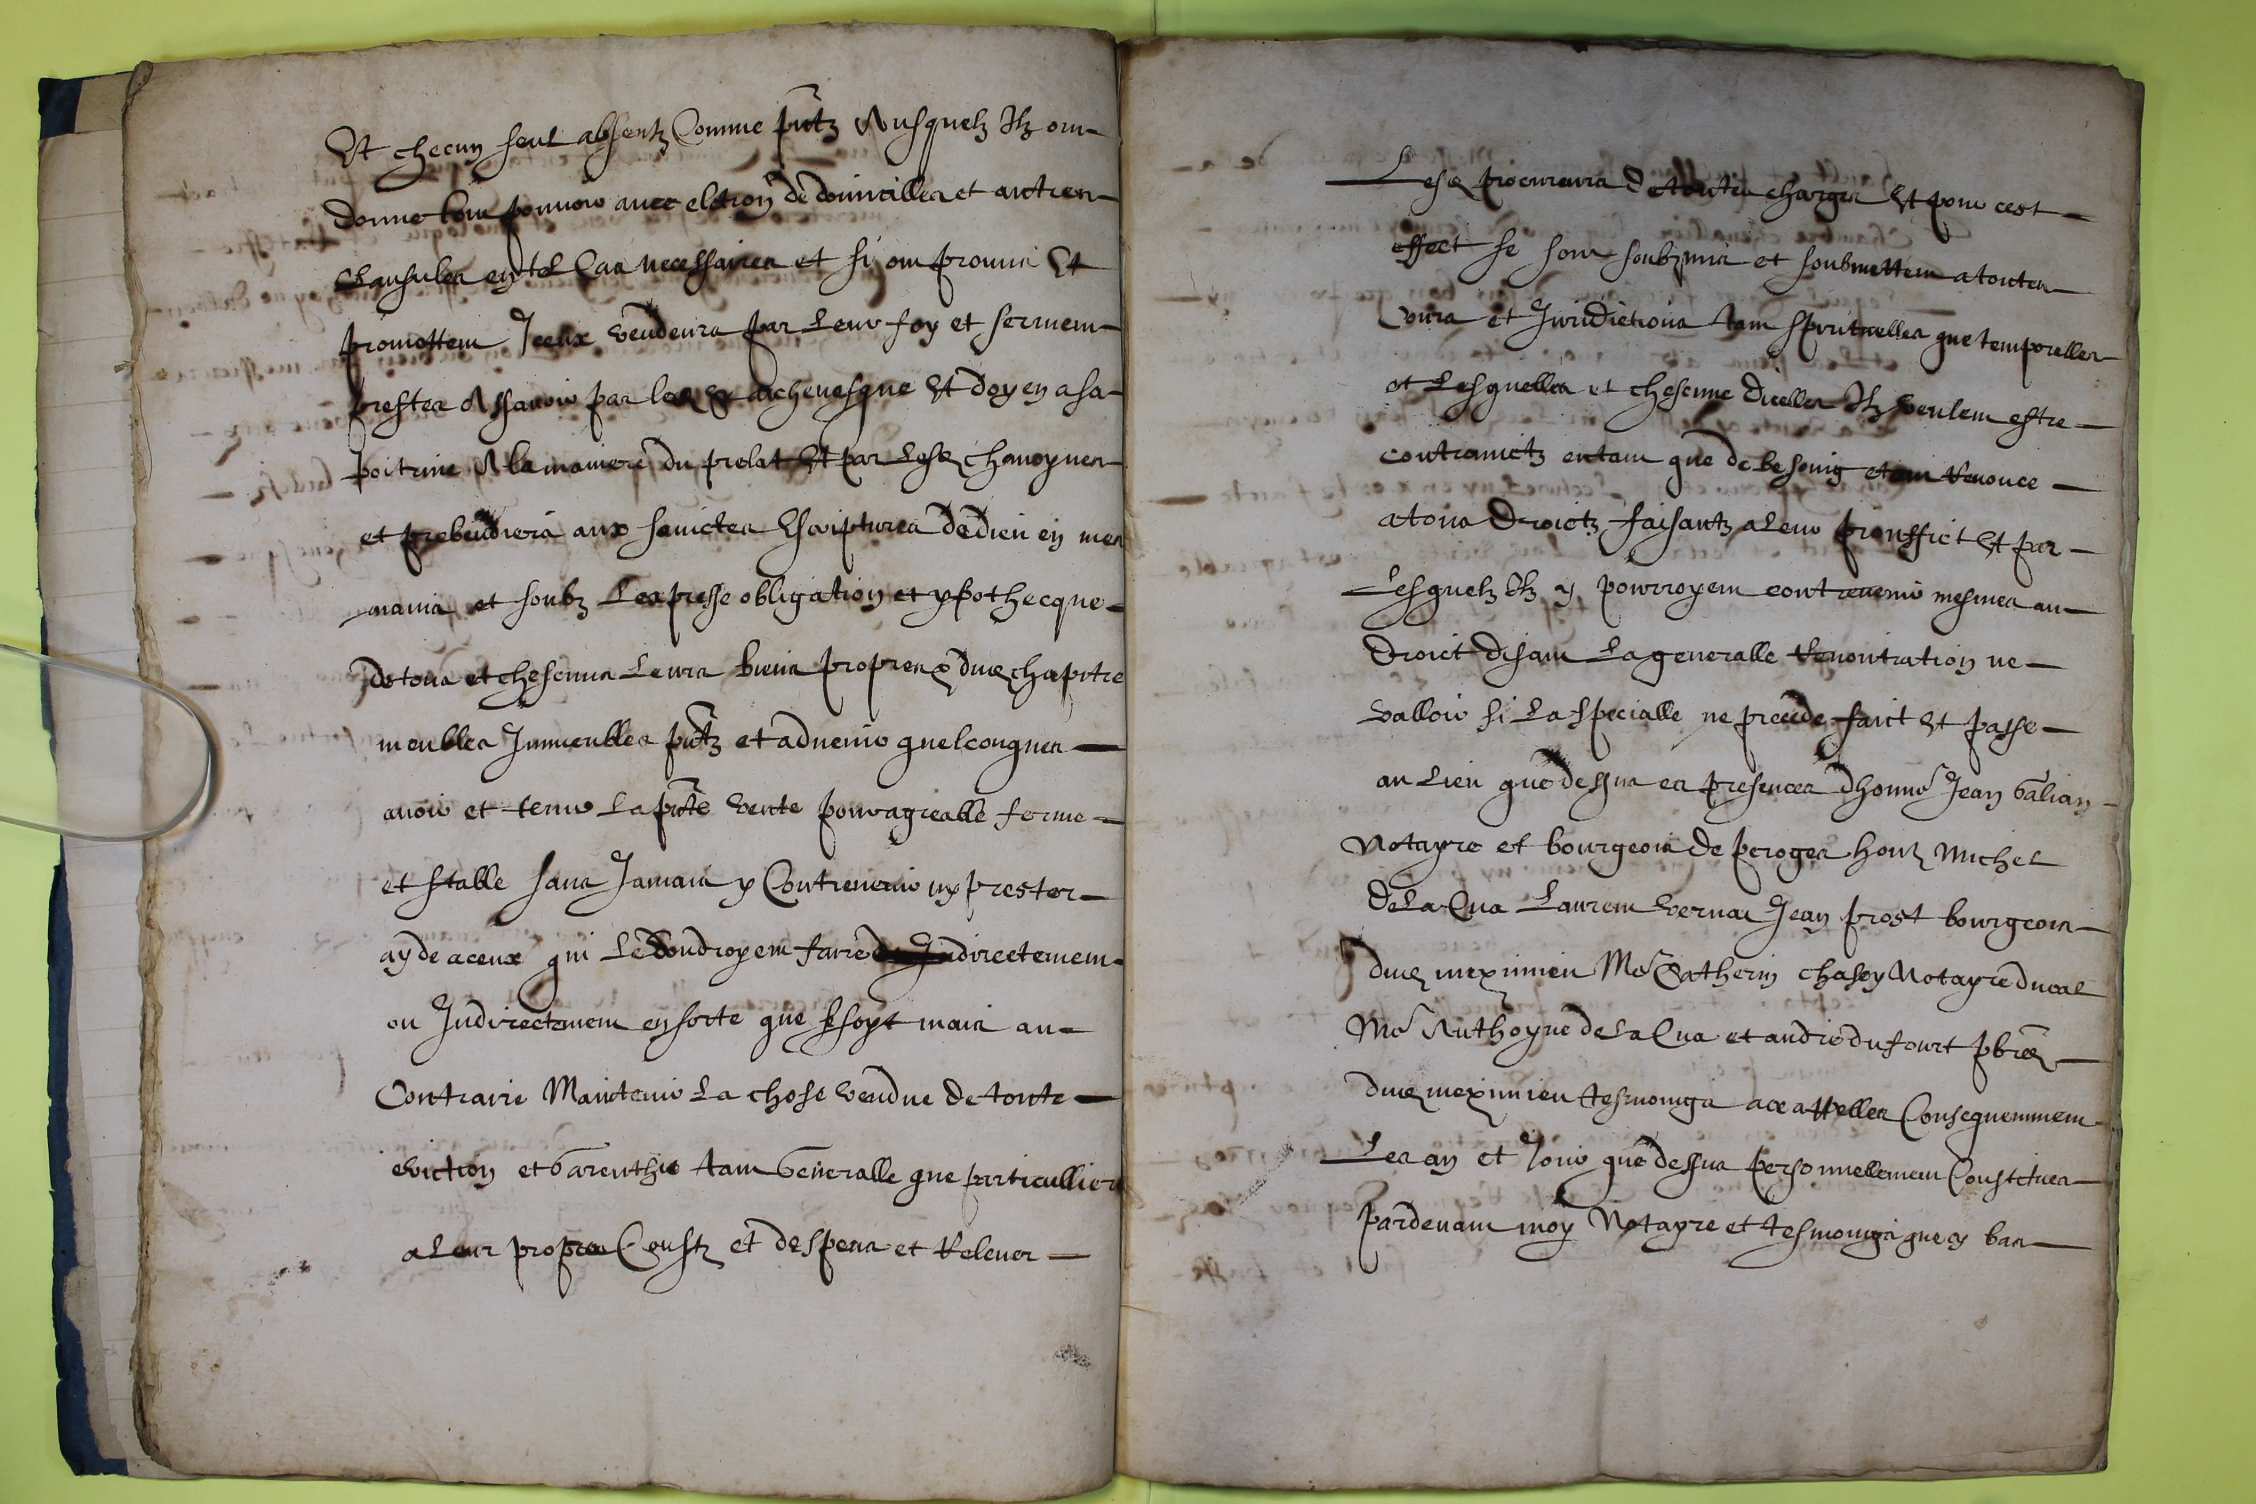 Et checun seul absentz Comme pntz Ausquelz Ilz ont
donne tout pouvoir avec elction de domicilles et aultres
Clausules en tel Cas necessaires et si ont promis Et
promettent Iceux vendeurs par Leur foy et serment
prestes Assavoir par les archevesque Et doyen a sa
poitrine A la maniere du prelat Et par Lesdz chanoynes
et prebendiers aux sainctes Escriptures de dieu en mes
mains et soubz Lexpresse obligation et ypothecque
de tous et chescuns Leurs biens propres dudz chapitre
meubles Immeubles pntz et advenir quelconques
avoir et tenir La pnte vente pour agreable ferme
et stable sans Jamais y Contrevenir ny prester
ayde a ceux qui Le voudroyent faire directement
ou Indirectement en sorte que se soyt mais au
Contraire Maintenir La chose vendue de toute
eviction et Garenthie tant Generalle que particulliere
a Leur propres Coustz et despens et Relever
Lesdz procureurs de toutes charges Et pour cest
effect se sont soubzmis et soubmettent a toutes
Cours et Juridictions tant spirituelles que temporelles
et Lesquelles et chescune dicelles Ilz veulent estre
contrainctz en tant que de besoing et ont Renonce
a tous Droictz faisantz a Leur prouffict Et par
Lesquelz Ilz y pourroyent contrevenir mesmes au
Droict disant La generalle Renontiation ne
valloir si La specialle ne precede faict Et passe
au Lieu que dessus es presences dhonne Jean Galian
Notayre et bourgeois de peroges honz Michel
De La Cua Laurent vernat Jean prost bourgeois
dudz meximieu Me Catherin chasey Notayre ducal
Me Anthoyne de La Cua et andre dufourt pbres
dudz meximieu tesmoings a ce appelles Consequemment
Les an et Jour que dessus personnellement Constitues
pardevant moy Notayre et tesmoings que cy bas